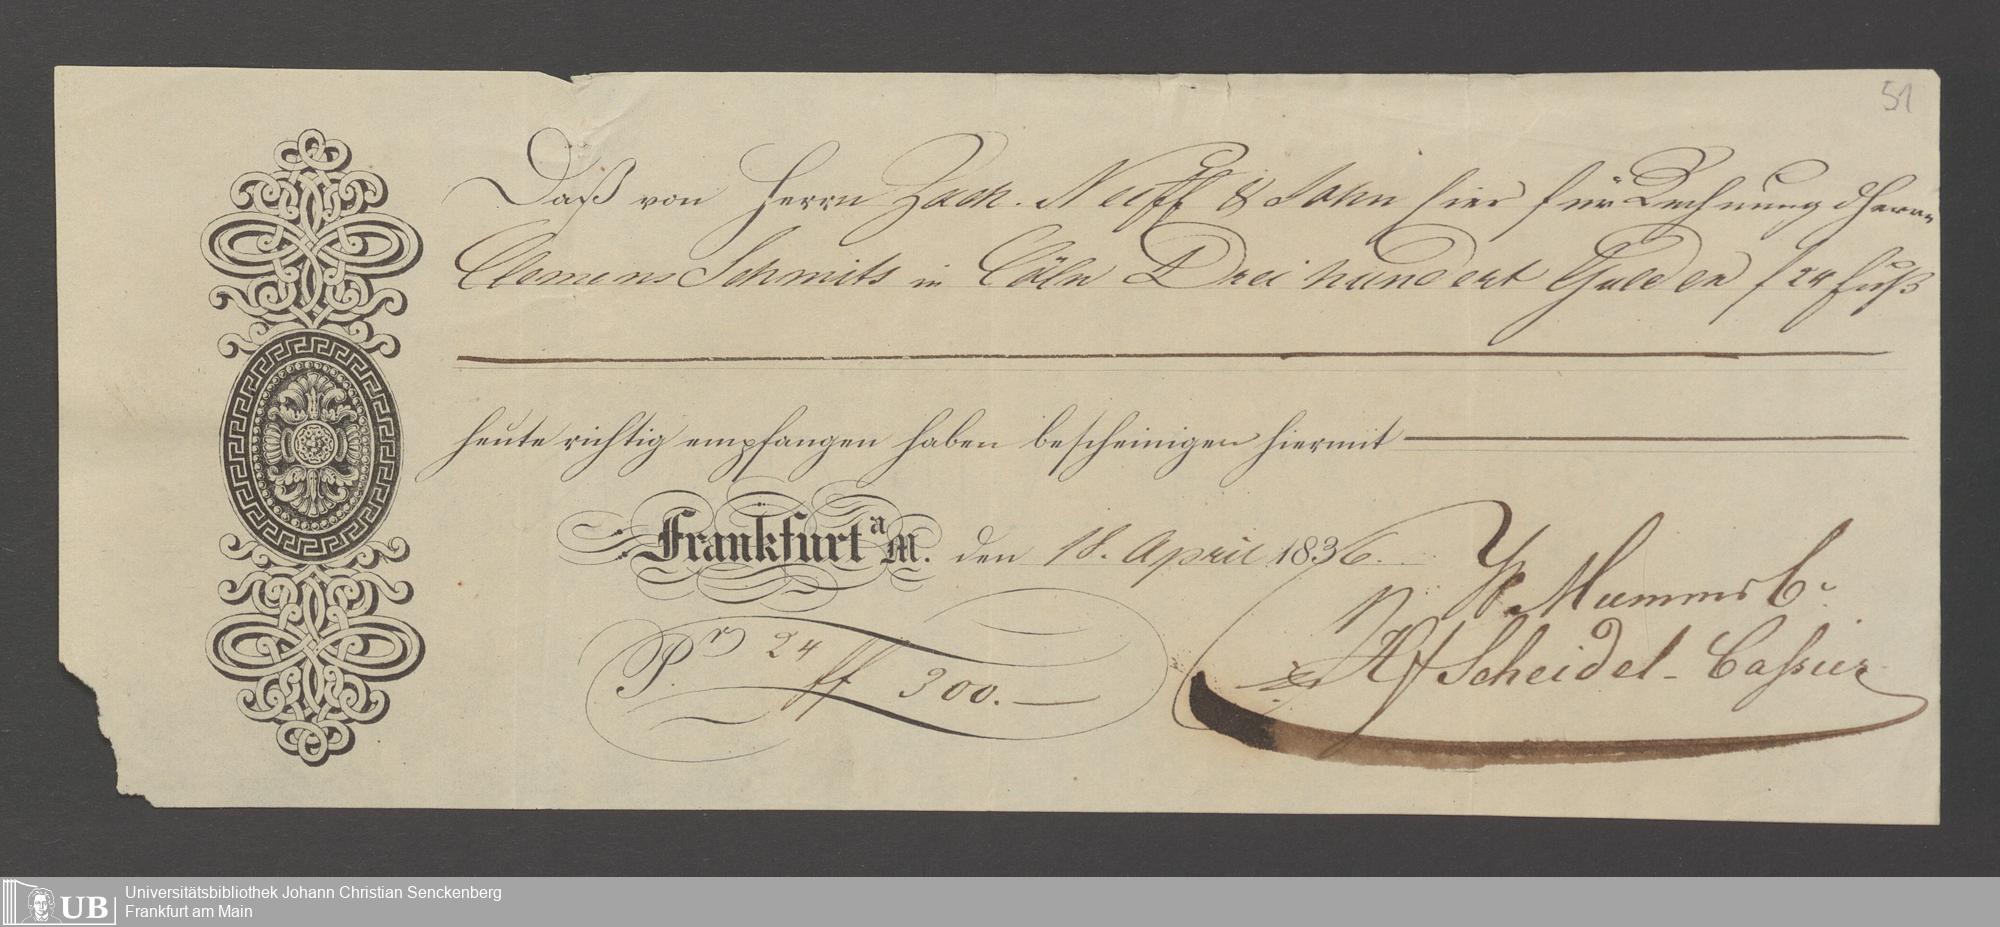 51
Daß von Herrn Zach. Neuff & Sohn hier für Rechnung d Herrn
Clemens Schmits in Cöln Drei hundert Gulden f 24 fuß
heute richtig empfangen haben bescheinigen hiermit
Frankfurt a M. den 18. April 1836.
Mumms C.
Pr 24 ff 300.—
Scheidel - Cassier
UB
Universitätsbibliothek Johann Christian Senckenberg
Frankfurt am Main